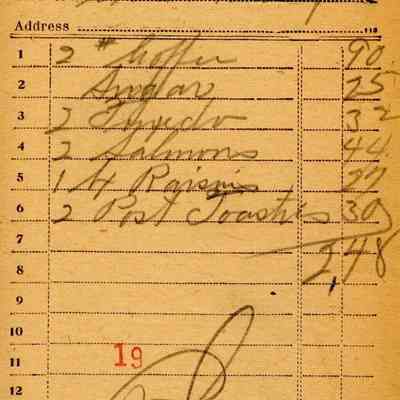 Address
1 2 # Coffee 90
2 Sugar 25
3 2 Tuxedo 32
4 2 Salmons 44
5 1 4 Raisins 27
6 2 Post Toasties 30
7
8 2,48
9
10
11 19
12